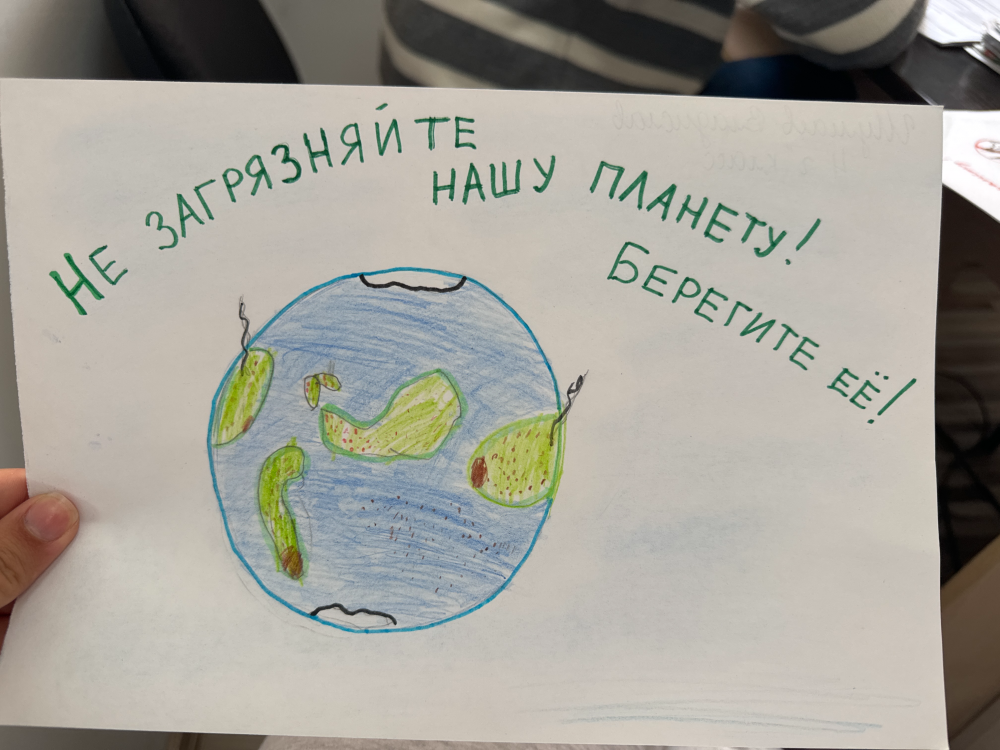 НЕ ЗАГРЯЗНЯЙТЕ
НАШУ ПЛАНЕТУ!
БЕРЕГИТЕ ЕЁ!